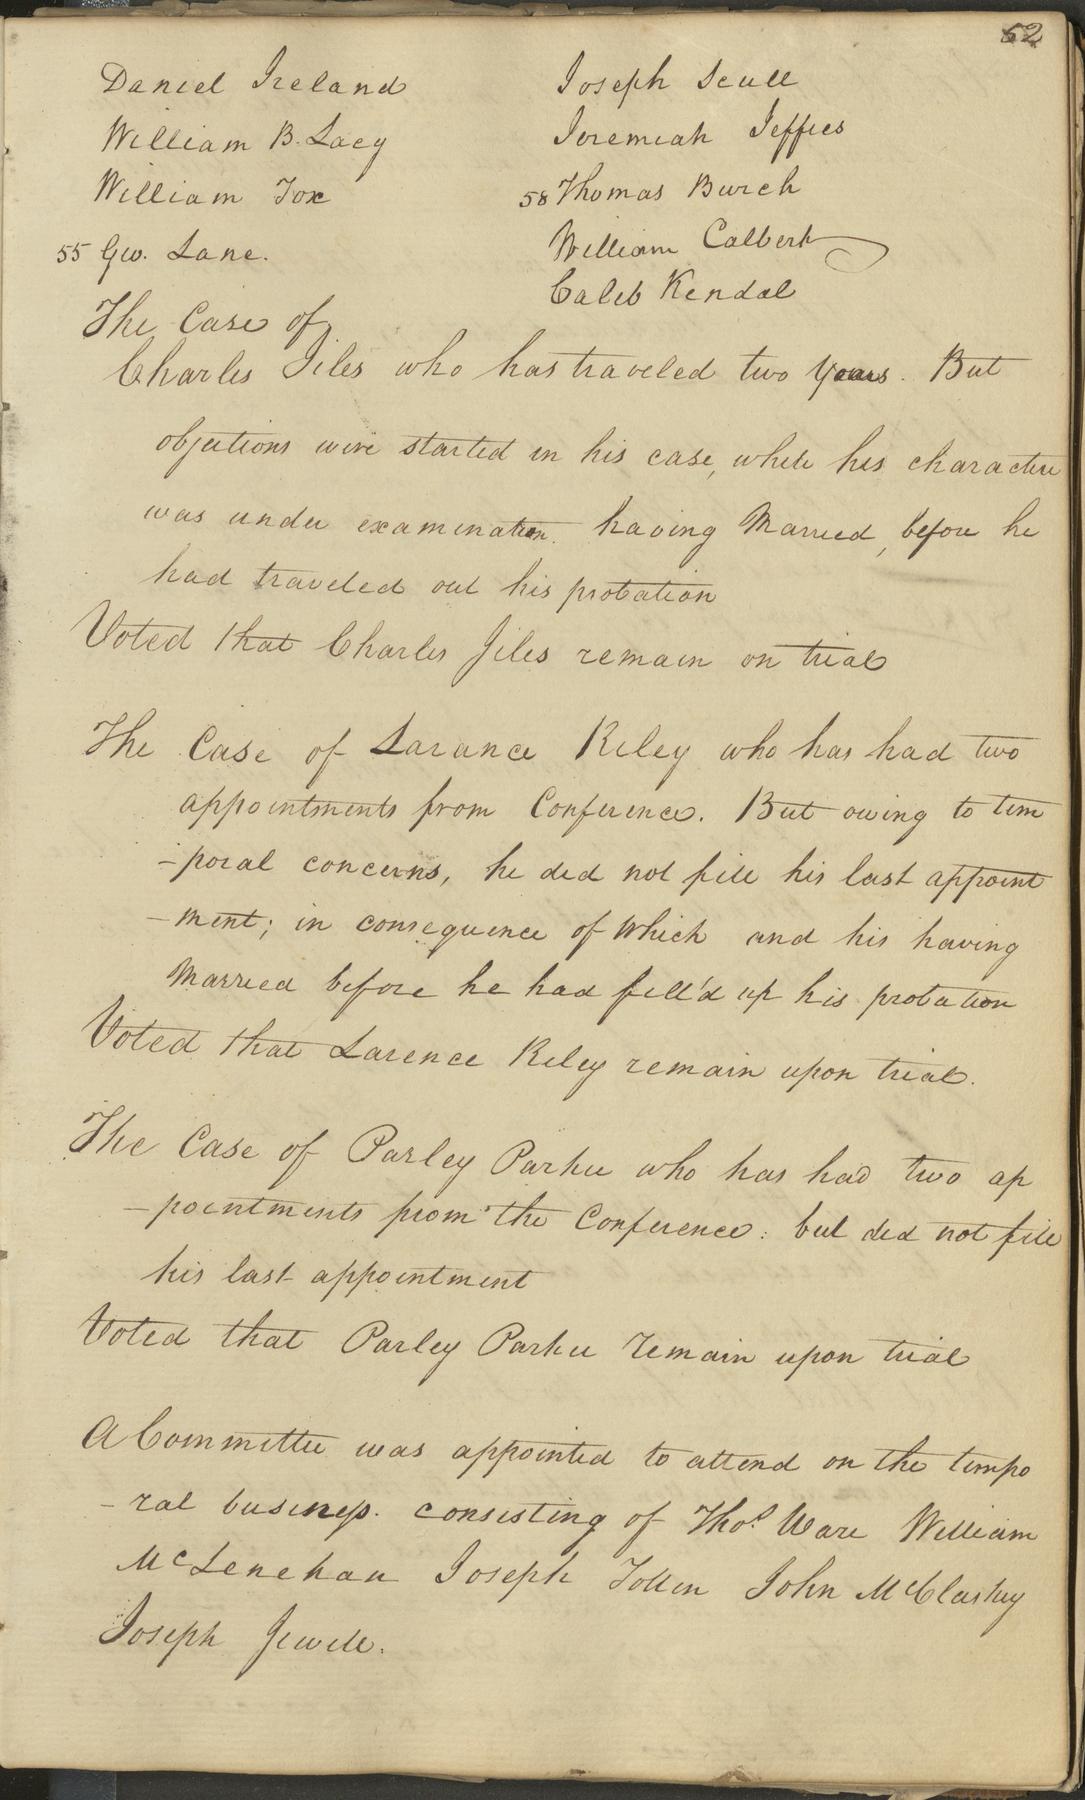 52
Daniel Ireland
William B. Lacy
William Fox
55 Geo. Lane.
Joseph Scull
Jeremiah Jeffies
58 Thomas Burch
William Colbert
Caleb Kendal
The Case of
Charles Jiles who has traveled two years. But
objections were started in his case, while his character
was under examination. having Married, before he
had traveled out his probation
Voted that Charles Jiles remain on trial
The Case of Larance Riley who has had two
appointments from Conference. But owing to tem
-poral concerns, he did not fill his last appoint
-ment; in consequence of which and his having
Married before he had fill'd up his probation
Voted that Larence Riley remain upon trial.
The Case of Parley Parker who has had two ap
-pointments from the Conference: but did not fill
his last appointment
Voted that Parley Parker remain upon trial
A Committee was appointed to attend on the tempo
-ral business. consisting of Thos. Ware William
McLenehan Joseph Totten John McClaskey
Joseph Jewell.